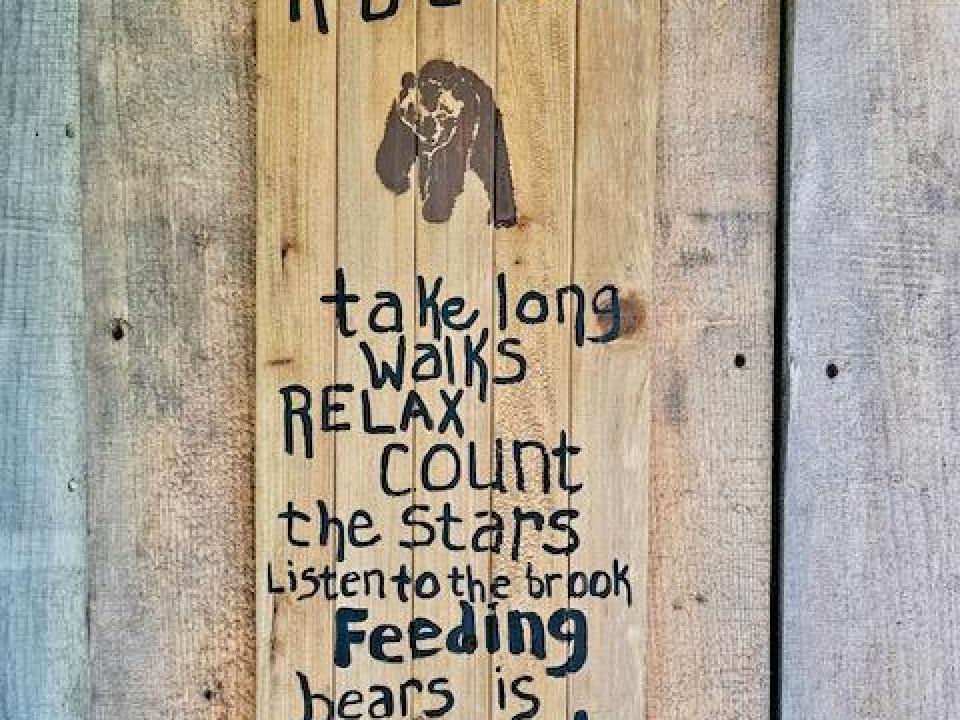 take long
walks
RELAX
count
the stars
Listen to the brook
Feeding
bears is